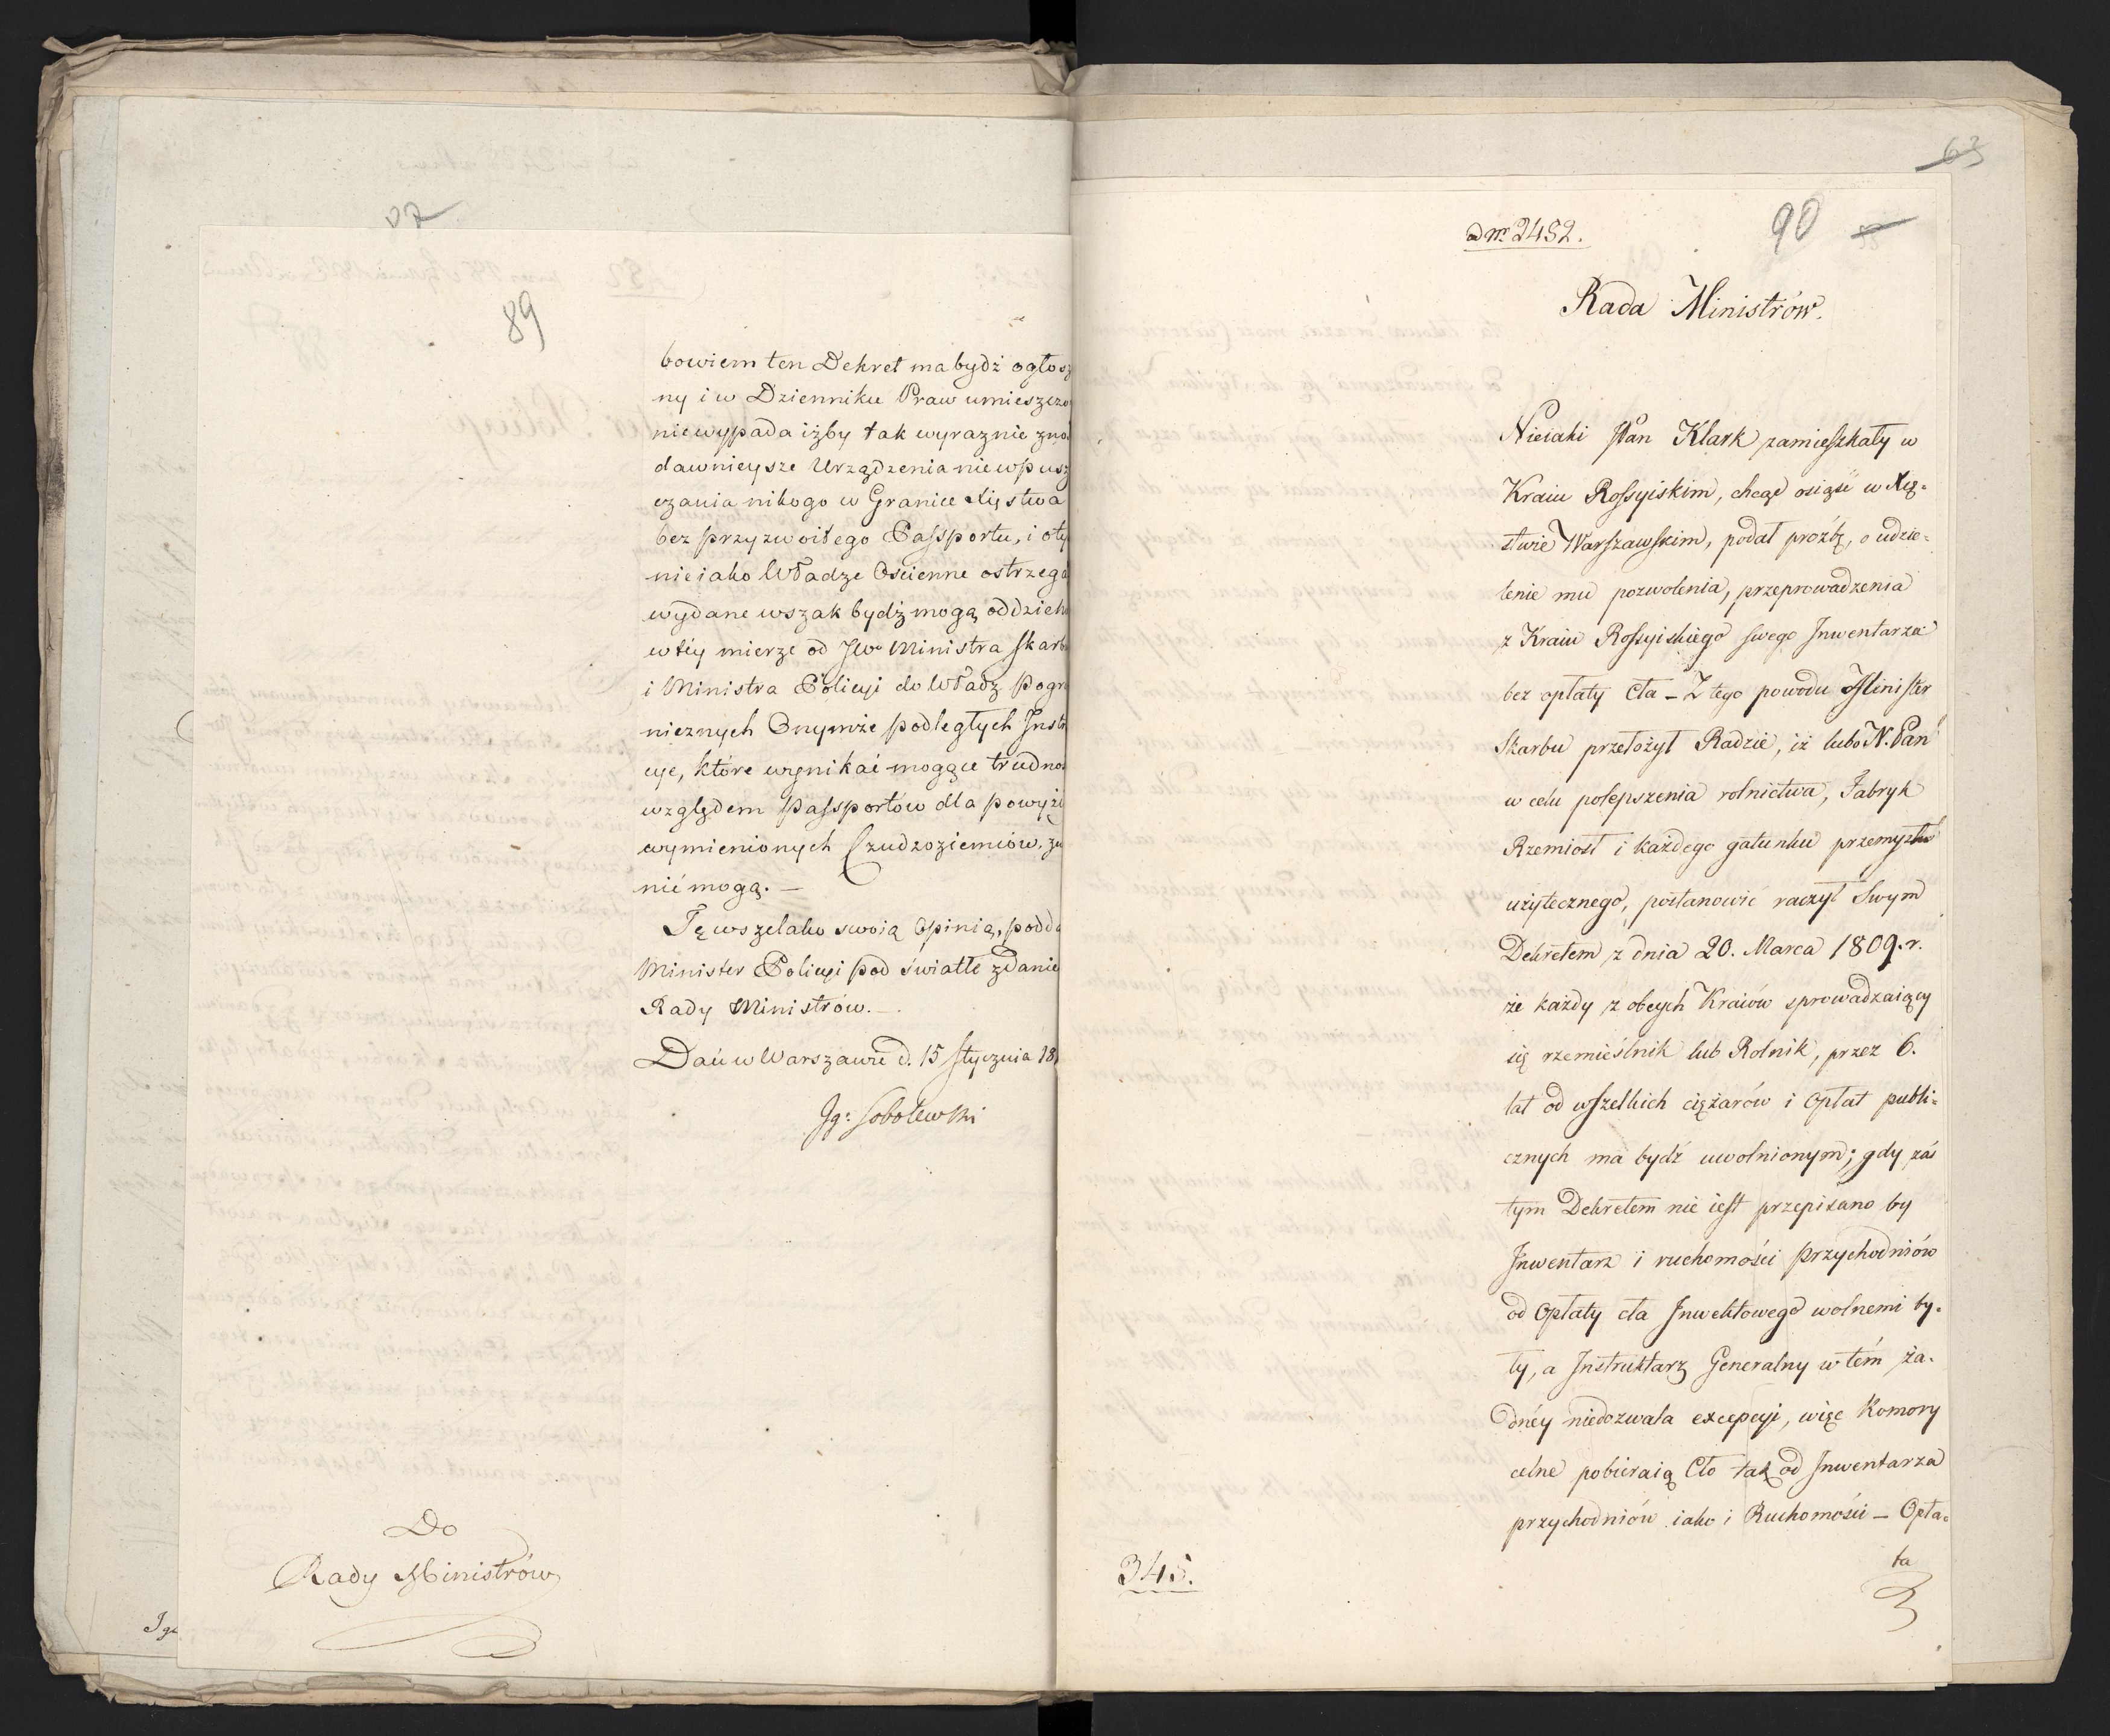 89
bowiem ten Dekret ma bydź ogłosz
ny i w Dzienniku Praw umieszczo
niewypada iżby tak wyraznie zno
dawnieysze Urządzenia niewpusz
czania nikogo w Granice Xięstwa
bez przyzwoitego Passportu, i oty
nieiako Władze Oscienne ostrzega
wydane wszak bydź mogą oddzieln
w téy mierze od JWo Ministra Skarb
i Ministra Policyi do Władz Pogra
nicznych Onymże podległych Instr
cye, które wynikać mogące trudno
względem Passportów dla powyże
wymienionych Czudzoziemców, za
nié mogą. —
Tę wszelako swoią Opinią, podda
Minister Policyi pod światłe zdanie
Rady Ministrów. —
Dań w Warszawie d. 15 Stycznia 18
Ig: Sobolewski
Do
Rady Ministrów
63
ad nr 2482.
90
Rada Ministrów.
Nieiaki Pan Klark zamieszkały w
Kraiu Rossyiskim, chcąc osiąść w Xię-
stwie Warszawskim, podał proźbę, o udzie-
lenie mu pozwolenia, przeprowadzenia
z Kraiu Rossyiskiego swego Inwentarza
bez opłaty Cła – Z tego powodu Minister
Skarbu przełożył Radzie, iż lubo N. Pan
w celu polepszenia rolnictwa, Fabryk
Rzemiosł i każdego gatunku przemysłu
użytecznego, postanowić raczył Swym
Dekretem z dnia 20. Marca 1809. r.
że każdy z obcych Kraiów sprowadzaiący
się rzemieślnik lub Rolnik, przez 6.
lat od wszelkich ciężarów i Opłat publi-
cznych ma bydź uwolnionym; gdy zaś
tym Dekretem nie iest przepisano by
Inwentarz i ruchomości przychodniów
od Opłaty cła Inwektowego wolnemi by-
ły, a Instruktarz Generalny w tém ża-
dnéy niedozwala excepcyi, więc Komory
celne pobieraią Cło tak od Inwentarza
przychodniów iako i Ruchomości – Opła-
ta
345.